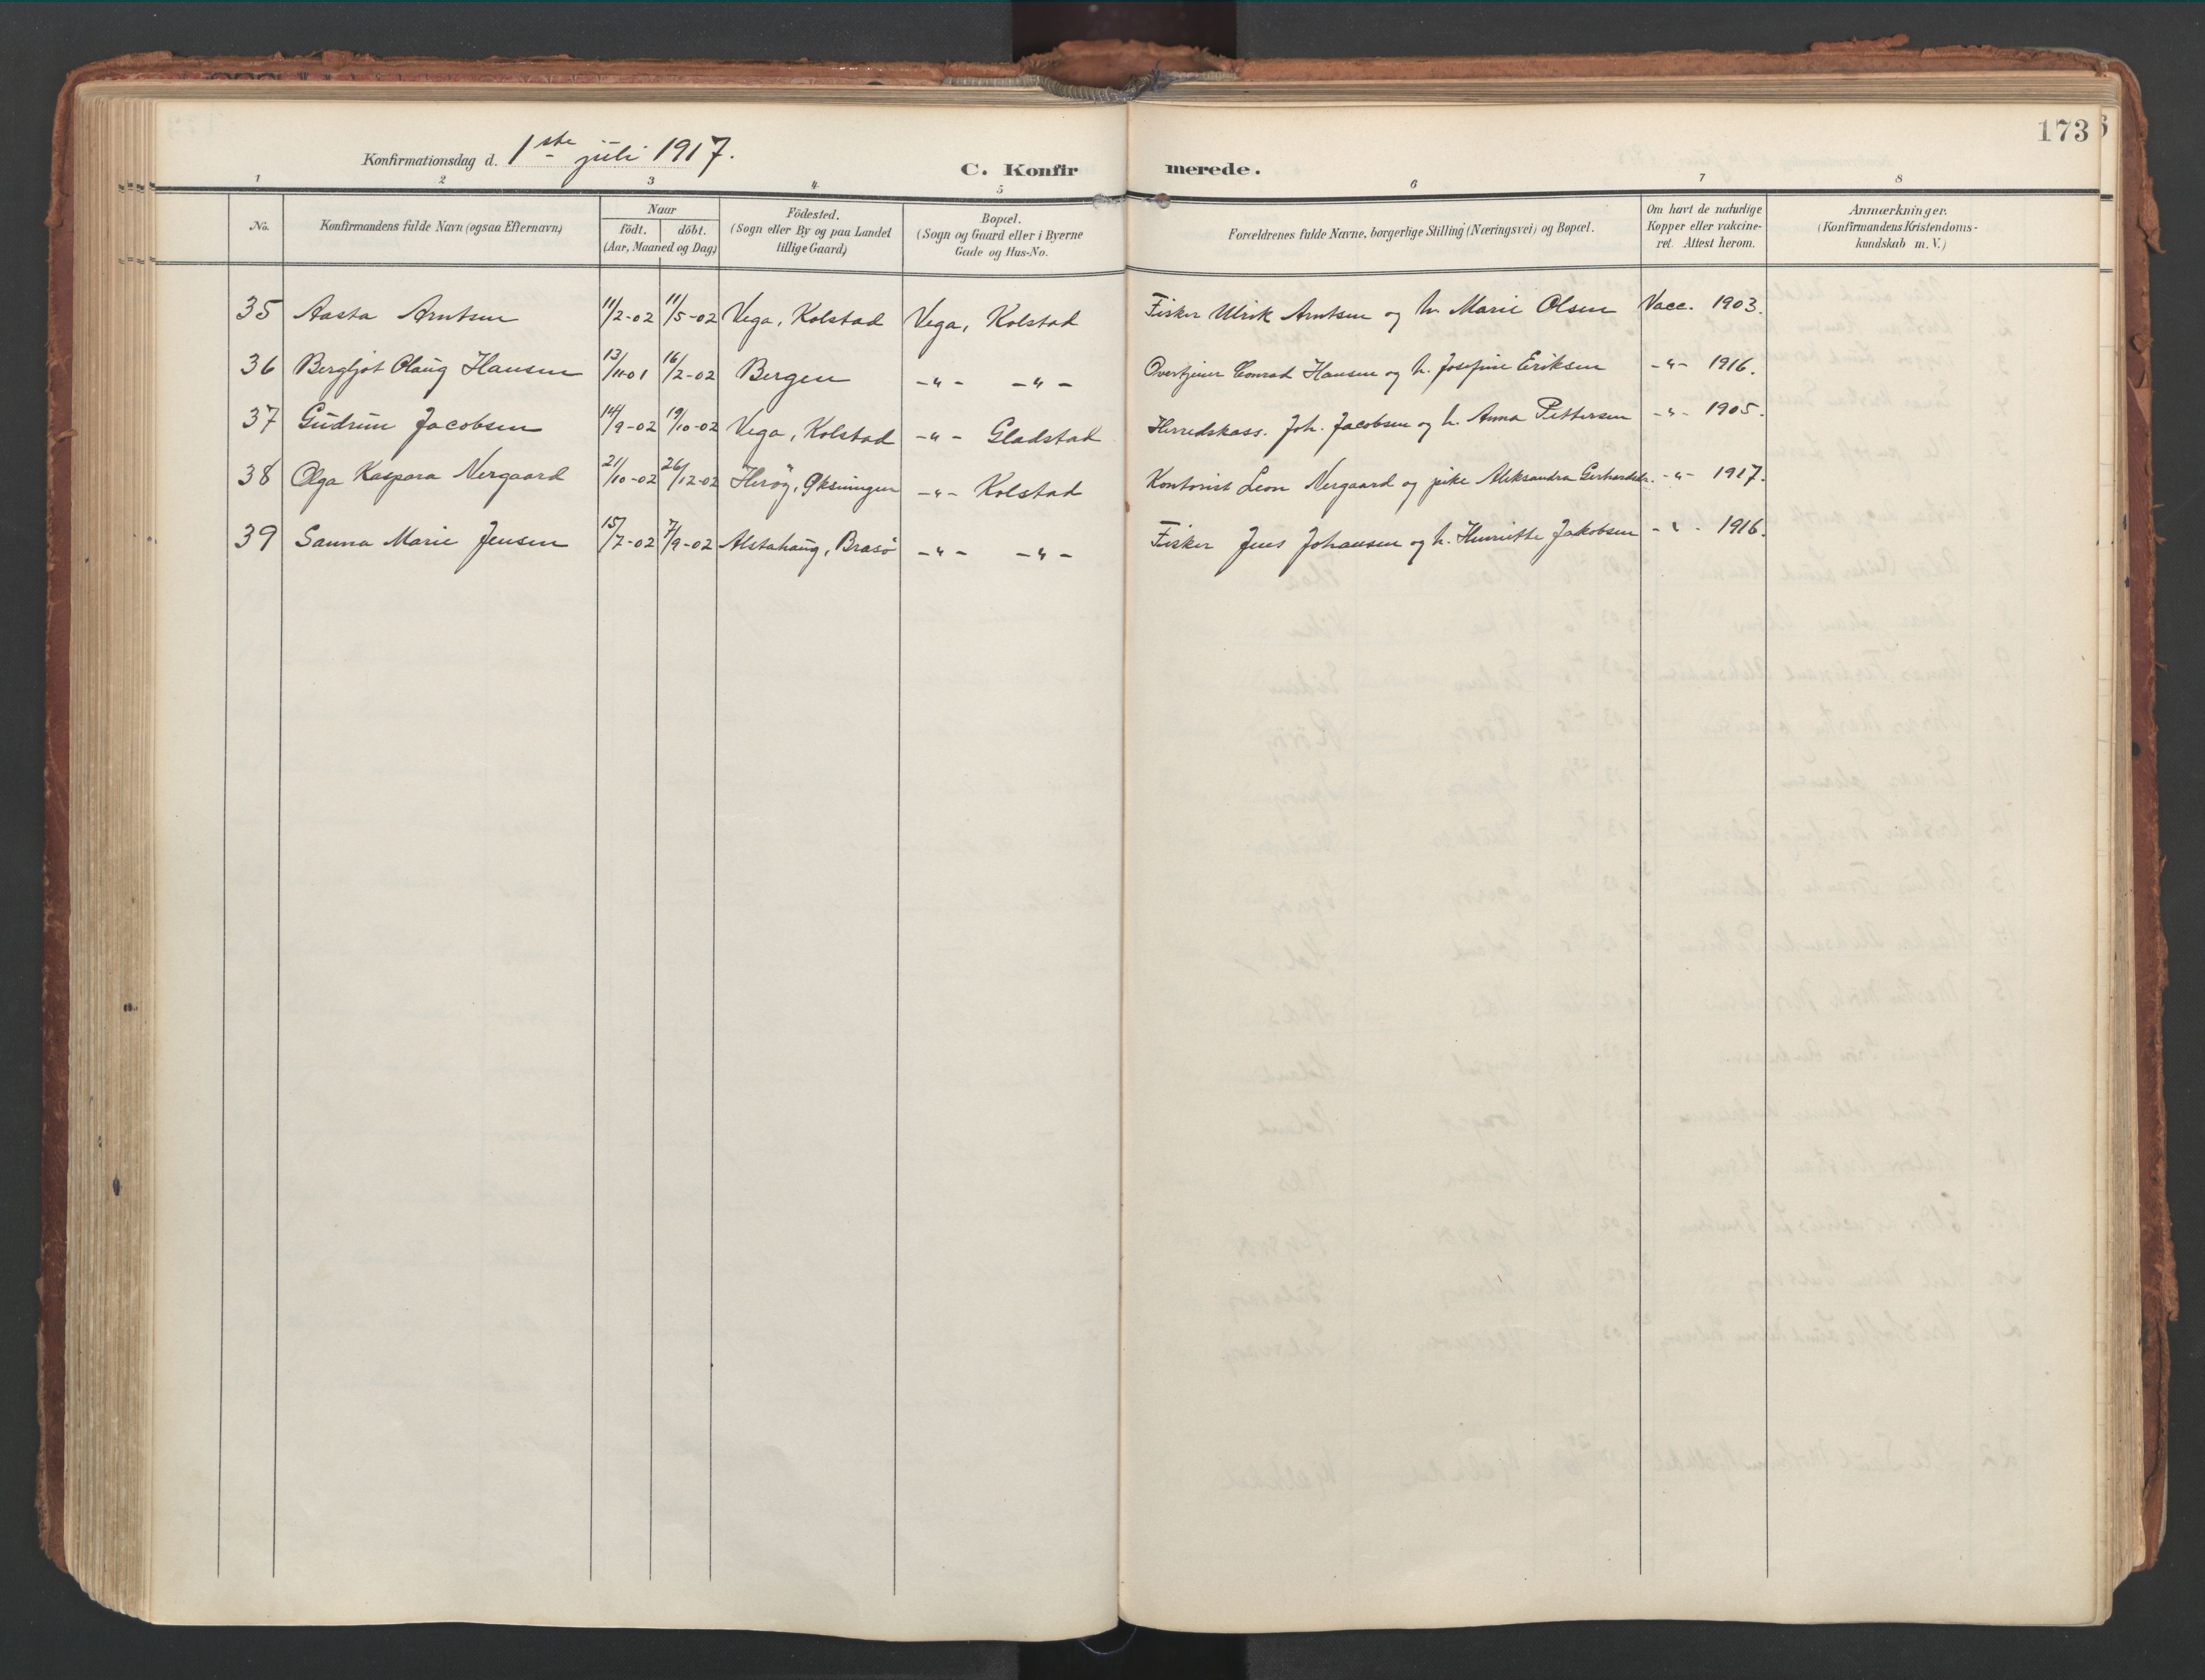 173
Konfirmationsdag d. 1ste juli 1917.
C. Konfirmerede.
1 2 3 4 5 6 7 8
No.
Konfirmandens fulde Navn (ogsaa Efternavn)
Naar
födt. döbt.
(Aar, Maaned og Dag)
Födested.
(Sogn eller By og paa Landet
tillige Gaard)
Bopæl.
(Sogn og Gaard eller i Byerne
Gade og Hus-No.
Forældrenes fulde Navne, borgerlige Stilling (Næringsvei) og Bopæl.
Om havt de naturlige
Kopper eller vakcine-
ret. Attest herom.
Anmærkninger.
(Konfirmandens Kristendoms-
kundskab m. V.)
35 Aasta Arntsen 11/2-02 11/5-02 Vega, Kolstad Vega, Kolstad Fisker Ulrik Arntsen og h. Marie Olsen Vacc. 1903.
36 Bergljot Olaug Hansen 13/11-01 16/2-02 Bergen -"- -"- Overtjener Conrad Hansen og h. Josefine Eriksen -"- 1916.
37 Gudrun Jacobsen 14/9-02 19/10-02 Vega, Kolstad -"- Gladstad Herredskass. Joh. Jacobsen og h. Anna Pettersen -"- 1905.
38 Olga Kaspara Nergaard 21/10-02 26/12-02 Herøy, Øksningen -"- Kolstad Kontorist Leon Nergaard og pike Aleksandra Gerhardsdr. -"- 1917.
39 Sanna Marie Jensen 15/7-02 7/9-02 Alstahaug, Brasø -"- -"- Fisker Jens Johansen og h. Henriette Jakobsen -"- 1916.